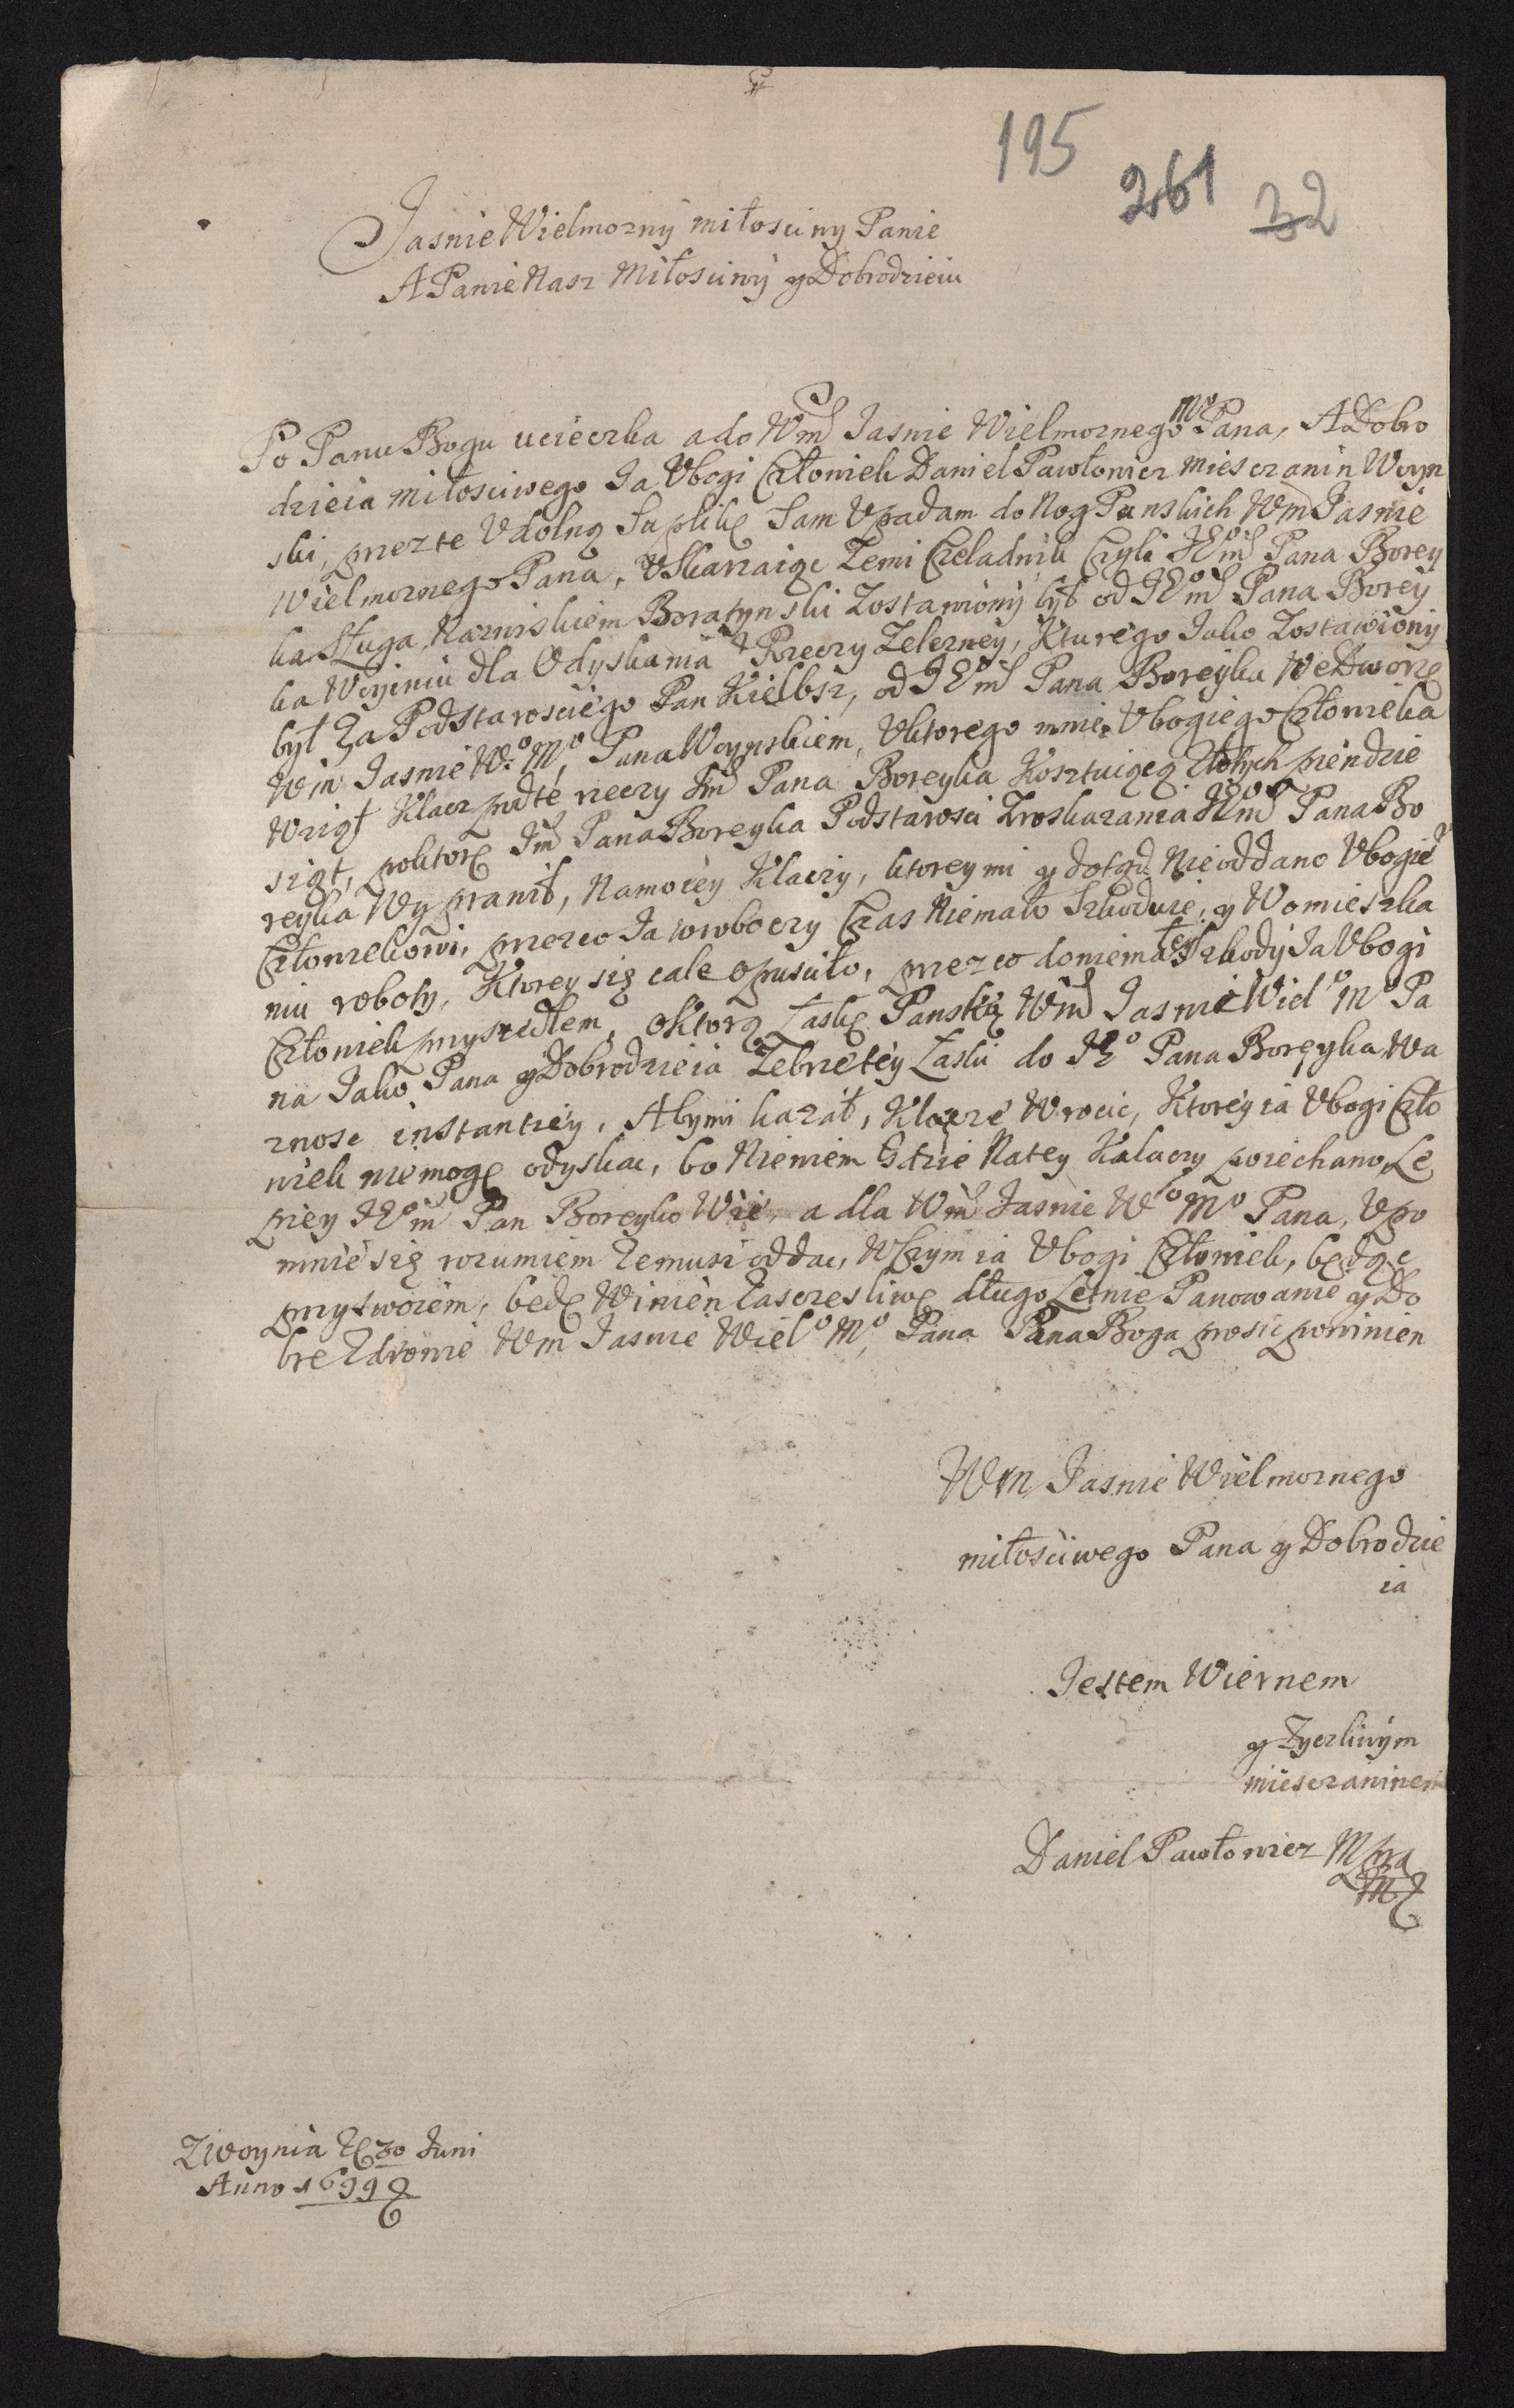 195
261 32
Jasnie Wielmozny miłosciwy Panie
A Panie Nasz Miłosciwy y Dobrodzieiu
Po Panu Bogu ucieczka a do Wm Jasnie Wielmoznego Mo Pana, A Dobro
dzieia miłosciwego Ja Vbogi Człowiek Daniel Pawłowicz mieszczanin Woyn
ski, przezte Vdolną Suplikę Sam Vpadam do Nog Panskich Wm Jasnie
Wielmoznego Pana, Vskarzaiąc Zemi Czeladnik Czyli JEom Pana Borey
ka Sługa, Nazwiskiem Boratynski Zostawiony był od JEom Pana Borey
ka Woyiniu dla Odyskania Rzeczy Zelezney, Kturego Jako Zostawiony
był Za Podstarosciego Pan Kiełbsz, od JEm Pana Boreyka WeDworze
Wm Jasnie Wo Mo, Pana Woynskiem, Vktorego mnie Vbogiego Człowieka
Wziął Klacz podte rzeczy Jm Pana Boreyka Kosztuiącą Złotych piendzie
siąt, poktorę Jm Pana Boreyka Podstarosci Zroskazania JEom Pana Bo
reyka Wyprawił, Namoiey Klaczy, ktorey mi y dotąd Nieoddano Vbogie
Człowiekowi, przezco Ja wroboczy Czas Niemało Szkoduie, y Womieszka
niu roboty, Ktorey się cale opusciło, przezco doniemałey Szkody Ja Vbogi
Człowiek przyszedłem, oktorą Łaskę Panską Wm Jasnie Wielo Mo Pa
na Jako Pana y Dobrodzieia Zebrzetey Łaski do JEo Pana Boreyka Wa
znosc instantiey, Abymi kazał, Klacze Wrocic, Ktorey ia Vbogi Czło
wiek niemogę odyskac, bo Niewiem Gdzie Natey Kalaczy poiechano, Le
piey JEom Pan Boreyko Wie, a dla Wm Jasnie Wo Mo Pana, Vpo
mnie się rozumiem Zemusi oddac, Wczym ia Vbogi Człowiek, będąc
przy swoiem, będę Winien Zasczesliwe długo Letnie Panowanie y Do
bre Zdrowie Wm Jasnie Wielo Mo, Pana Pana Boga prosic powinien
Wm Jasnie Wielmoznego
miłosciwego Pana y Dobrodzie
ia
Jestem Wiernem
y Zyczliwym
mieszczaninem
Daniel Pawłowicz Mpra
Zwoynia 30 Juni
Anno 1699